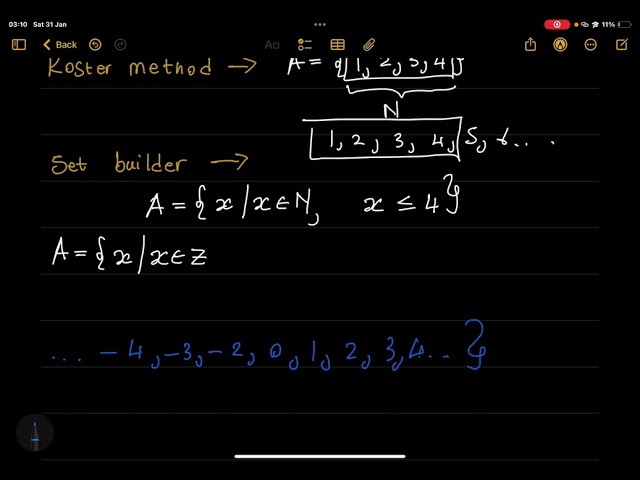 03:10 Sat 31 Jan
11%
Back
Aa
Roster method → A = {1, 2, 3, 4}
N
1, 2, 3, 4, 5, 6....
Set builder →
A = { x / x ∈ N, x ≤ 4 }
A = { x / x ∈ Z
... -4, -3, -2, 0, 1, 2, 3, 4.. }